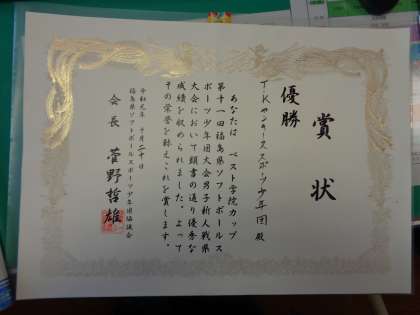 賞状
優勝
T・Kサンダーススポーツ少年団 殿
あなたは ベスト学院カップ
第十一回福島県ソフトボールス
ポーツ少年団大会男子新人戦県
大会において頭書の通り優秀な
成績を収められました。よって
その栄誉を称えこれを賞します。
令和元年 十月二十日
福島県ソフトボールスポーツ少年団協議会
会長 菅野哲雄